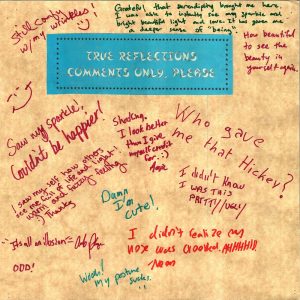 Still comfy
w/ my wrinkles!
Grateful that serendipity brought me here.
I was able to instantly see my sparkle and
bright beautiful light and love. It has given me
a deeper sense of "being".
How beautiful
to see the
beauty in
yourself again.
TRUE REFLECTIONS
COMMENTS ONLY, PLEASE
Saw my sparkle!
Couldn't be happier!
Shocking,
I look better
than I give
myself credit
for :)
Who gave
me that Hickey?
I saw my self how others
see me full of life and light!
warm and fuzzy feeling
Thanks
Damn
I'm
cute!
I didn't know
I WAS THIS
PRETTY/UGLY
It's all an illusion
ODD!
I didn't realize my
nose was crooked. AHHHHHH
Wooh!
My posture
sucks.